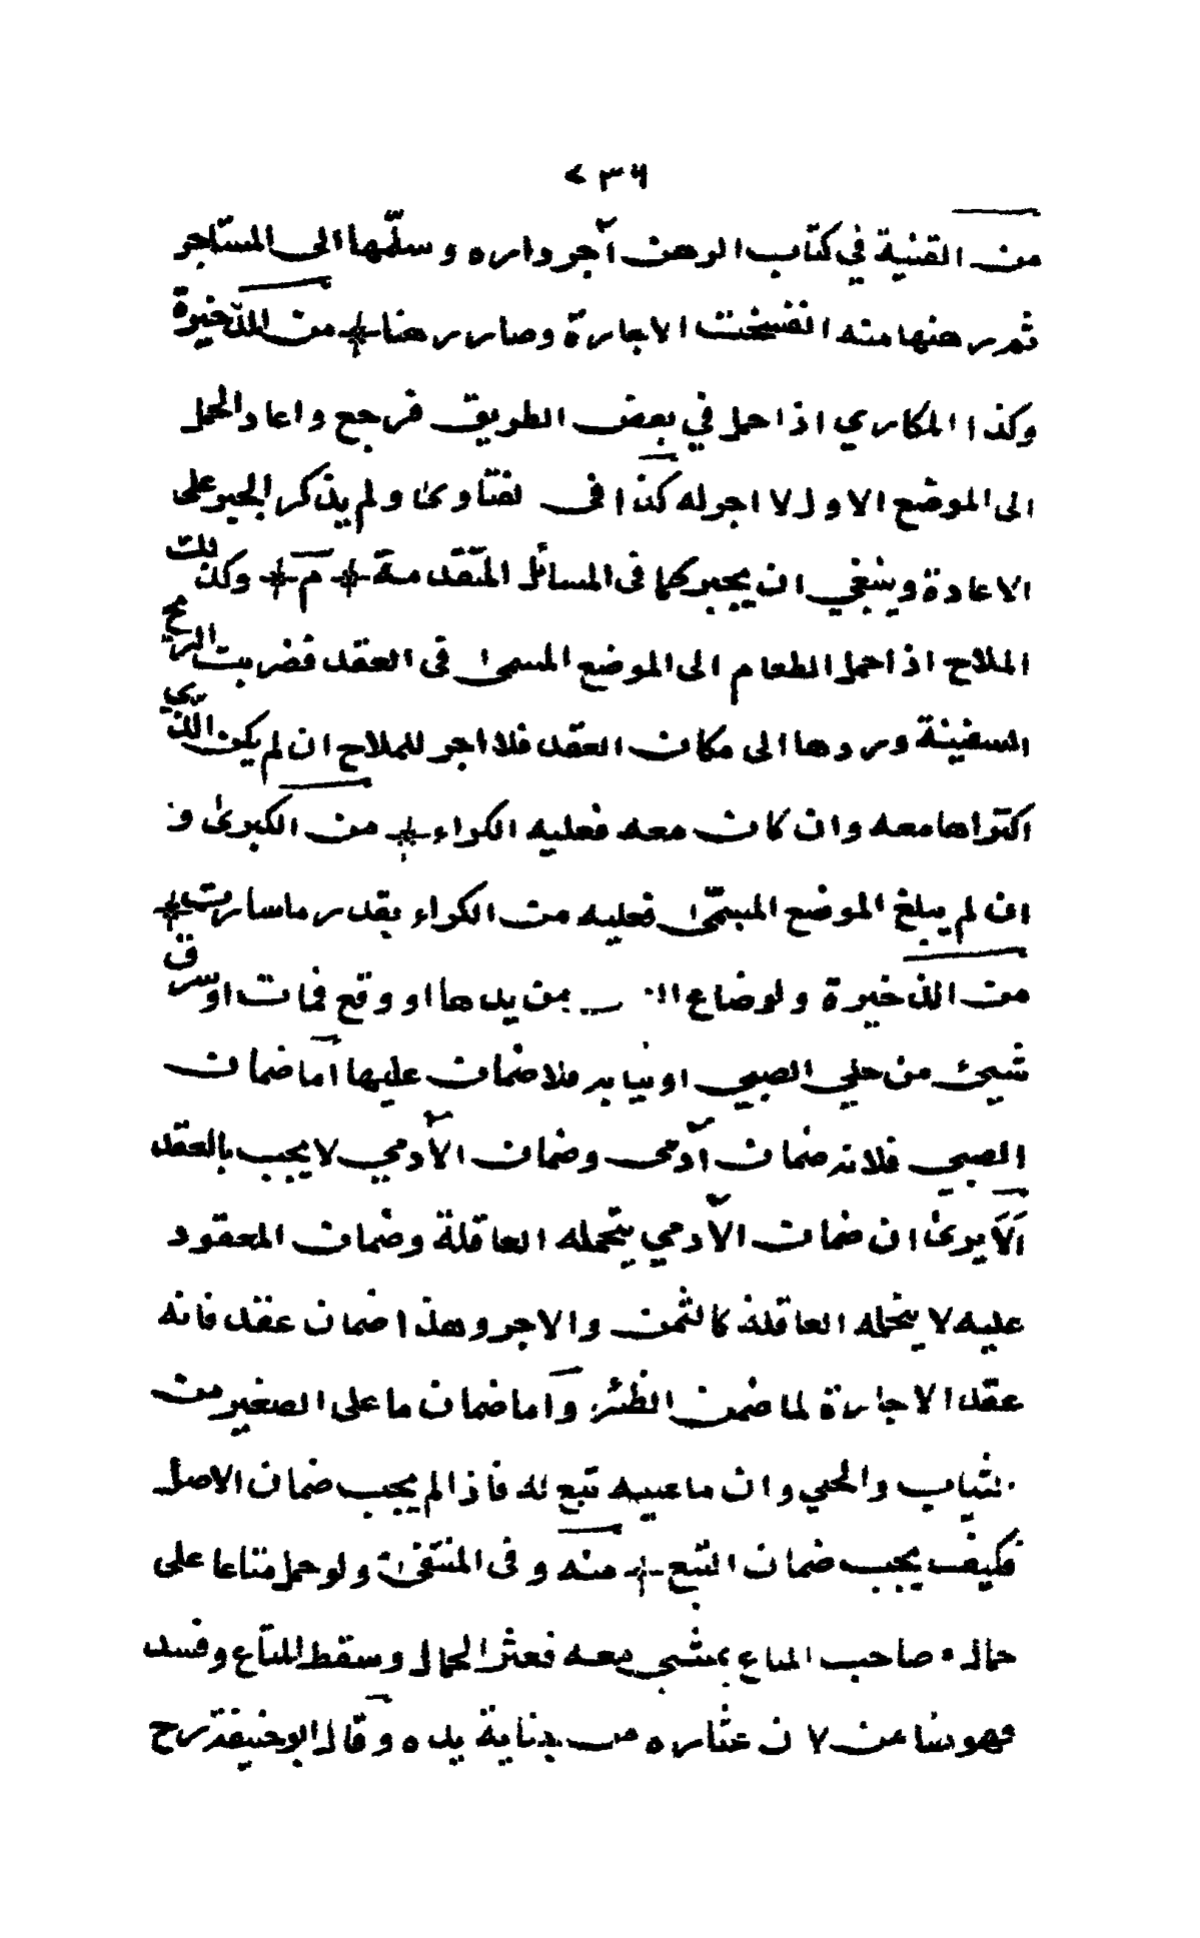 ٧٣٦
من القنية في كتاب الرهن آجر داره وسلّمها الى المستاجر
ثم رهنها منه انفسخت الاجارة وصار رهنا من الذخيرة
وكذا المكاري اذا حمل في بعض الطريق فرجع واعاد الحمل
الى الموضع الاول لا اجر له كذا فى لفتاوى ولم يذكر الجبر على
الاعادة وينبغي ان يجبر كما فى المسائل المتقدمة م وكذلك
الملاح اذا حمل الطعام الى الموضع المسمى فى العقد فضربت الريح
السفينة وردها الى مكان العقد فلا اجر للملاح ان لم يكن الذي
اكتراها معه وان كان معه فعليه الكراء من الكبرى و
ان لم يبلغ الموضع المسمّى فعليه من الكراء بقدر ما سارت
من الذخيرة ولو ضاع من يدها او وقع فمات او سرق
شيئ من حلي الصبي او ثيابه فلا ضمان عليها اما ضمان
الصبي فلانه ضمان آدمى وضمان الآدمي لا يجب بالعقد
الا يرى ان ضمان الآدمي يتحمله العاقلة وضمان المعقود
عليه لا يتحمله العاقلة كالثمن والاجر وهذا ضمان عقد فانه
عقد الاجارة لما ضمن الظئر واما ضمان ما على الصغير من
لثياب والحلي وان ما عليه تبع له فاذا لم يجب ضمان الاصل
فكيف يجب ضمان التبع منه وفى المنتقى ولو حمل متاعا على
حمال وصاحب المتاع يمشي معه فعثر الحمال وسقط المتاع وفسد
فهو ضامن لان عثاره من جناية يده وقال ابو حنيفة رح